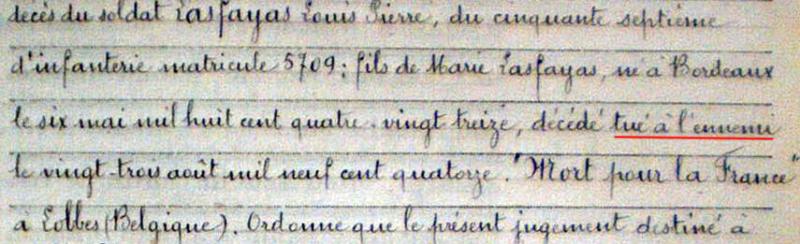 décès du soldat Lasfayas Louis Pierre, du cinquante septième
d'infanterie matricule 5709; fils de Marie Lasfayas, né à Bordeaux
le six mai mil huit cent quatre-vingt treize, décédé tué à l'ennemi
le vingt-trois août mil neuf cent quatorze. "Mort pour la France"
à Lobbes (Belgique). Ordonne que le présent jugement destiné à